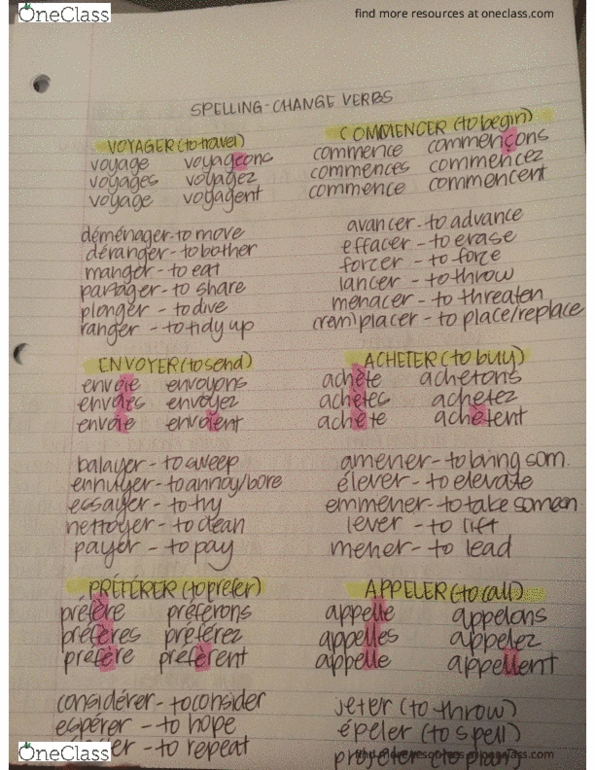 OneClass
find more resources at oneclass.com
SPELLING-CHANGE VERBS
VOYAGER (to travel)
voyage voyageons
voyages voyagez
voyage voyagent
déménager-to move
déranger-to bother
manger-to eat
partager-to share
plonger-to dive
ranger-to tidy up
COMMENCER (to begin)
commence commençons
commences commencez
commence commencent
avancer-to advance
effacer-to erase
forcer-to force
lancer-to throw
menacer-to threaten
(rem)placer-to place/replace
ENVOYER (to send)
envoie envoyons
envoies envoyez
envoie envoient
balayer-to sweep
ennuyer-to annoy/bore
essayer-to try
nettoyer-to clean
payer-to pay
ACHETER (to buy)
achète achetons
achètes achetez
achète achètent
amener-to bring som.
élever-to elevate
emmener-to take someon
lever-to lift
mener-to lead
PRÉFÉRER (to prefer)
préfère préférons
préfères préférez
préfère préfèrent
considérer-to consider
espérer-to hope
to repeat
APPELER (to call)
appelle appelons
appelles appelez
appelle appellent
jeter (to throw)
épeler (to spell)
(to plan)
OneClass
find more resources at oneclass.com